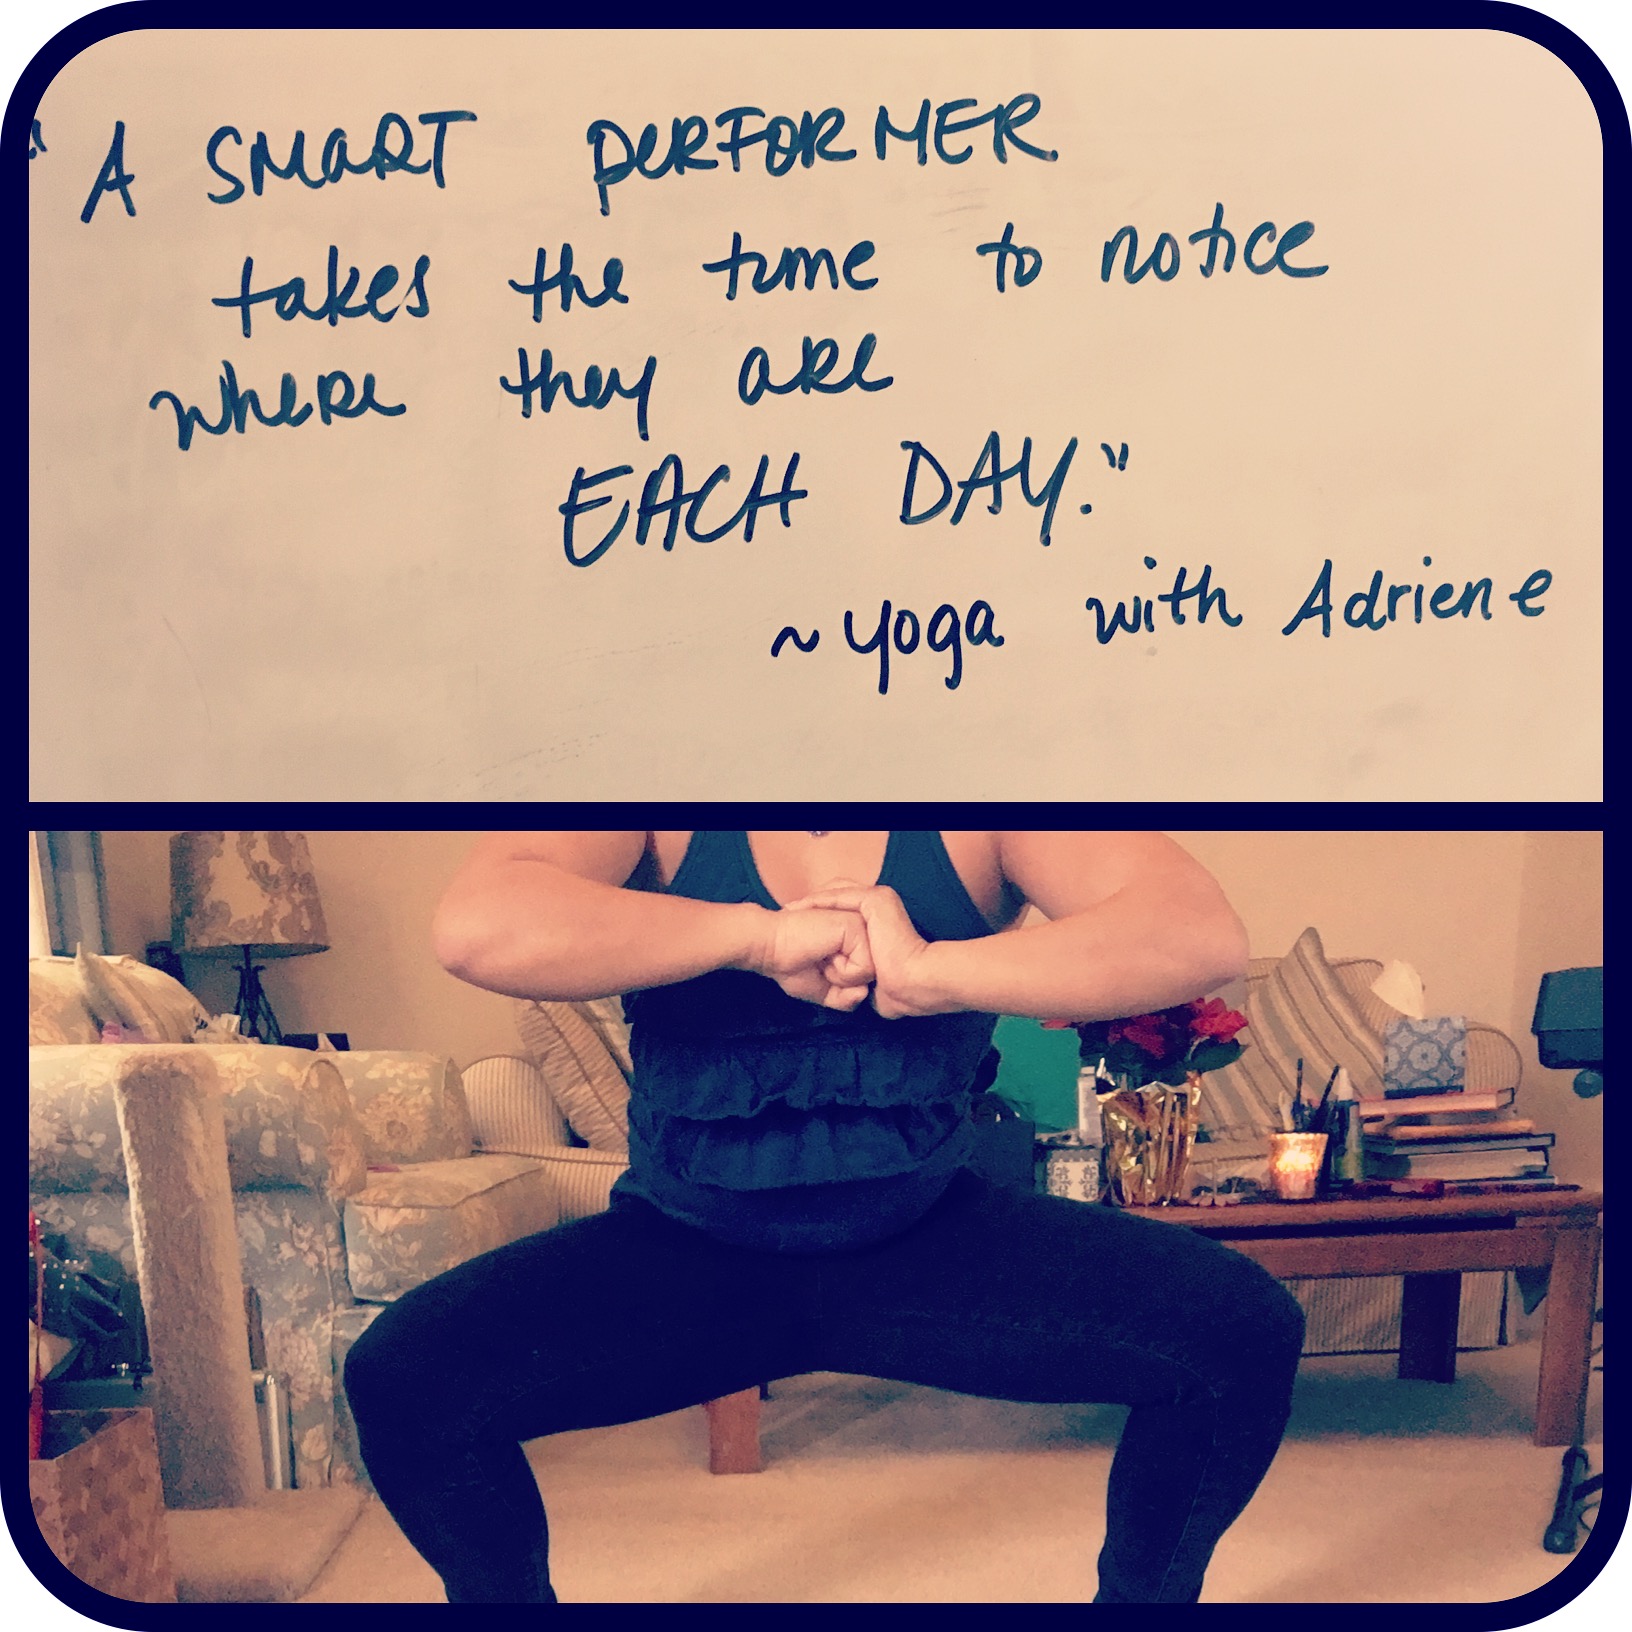 "A SMaRT peRFORMER
takes the time to notice
wheRe they aRe
EACH DAY."
~yoga with Adriene